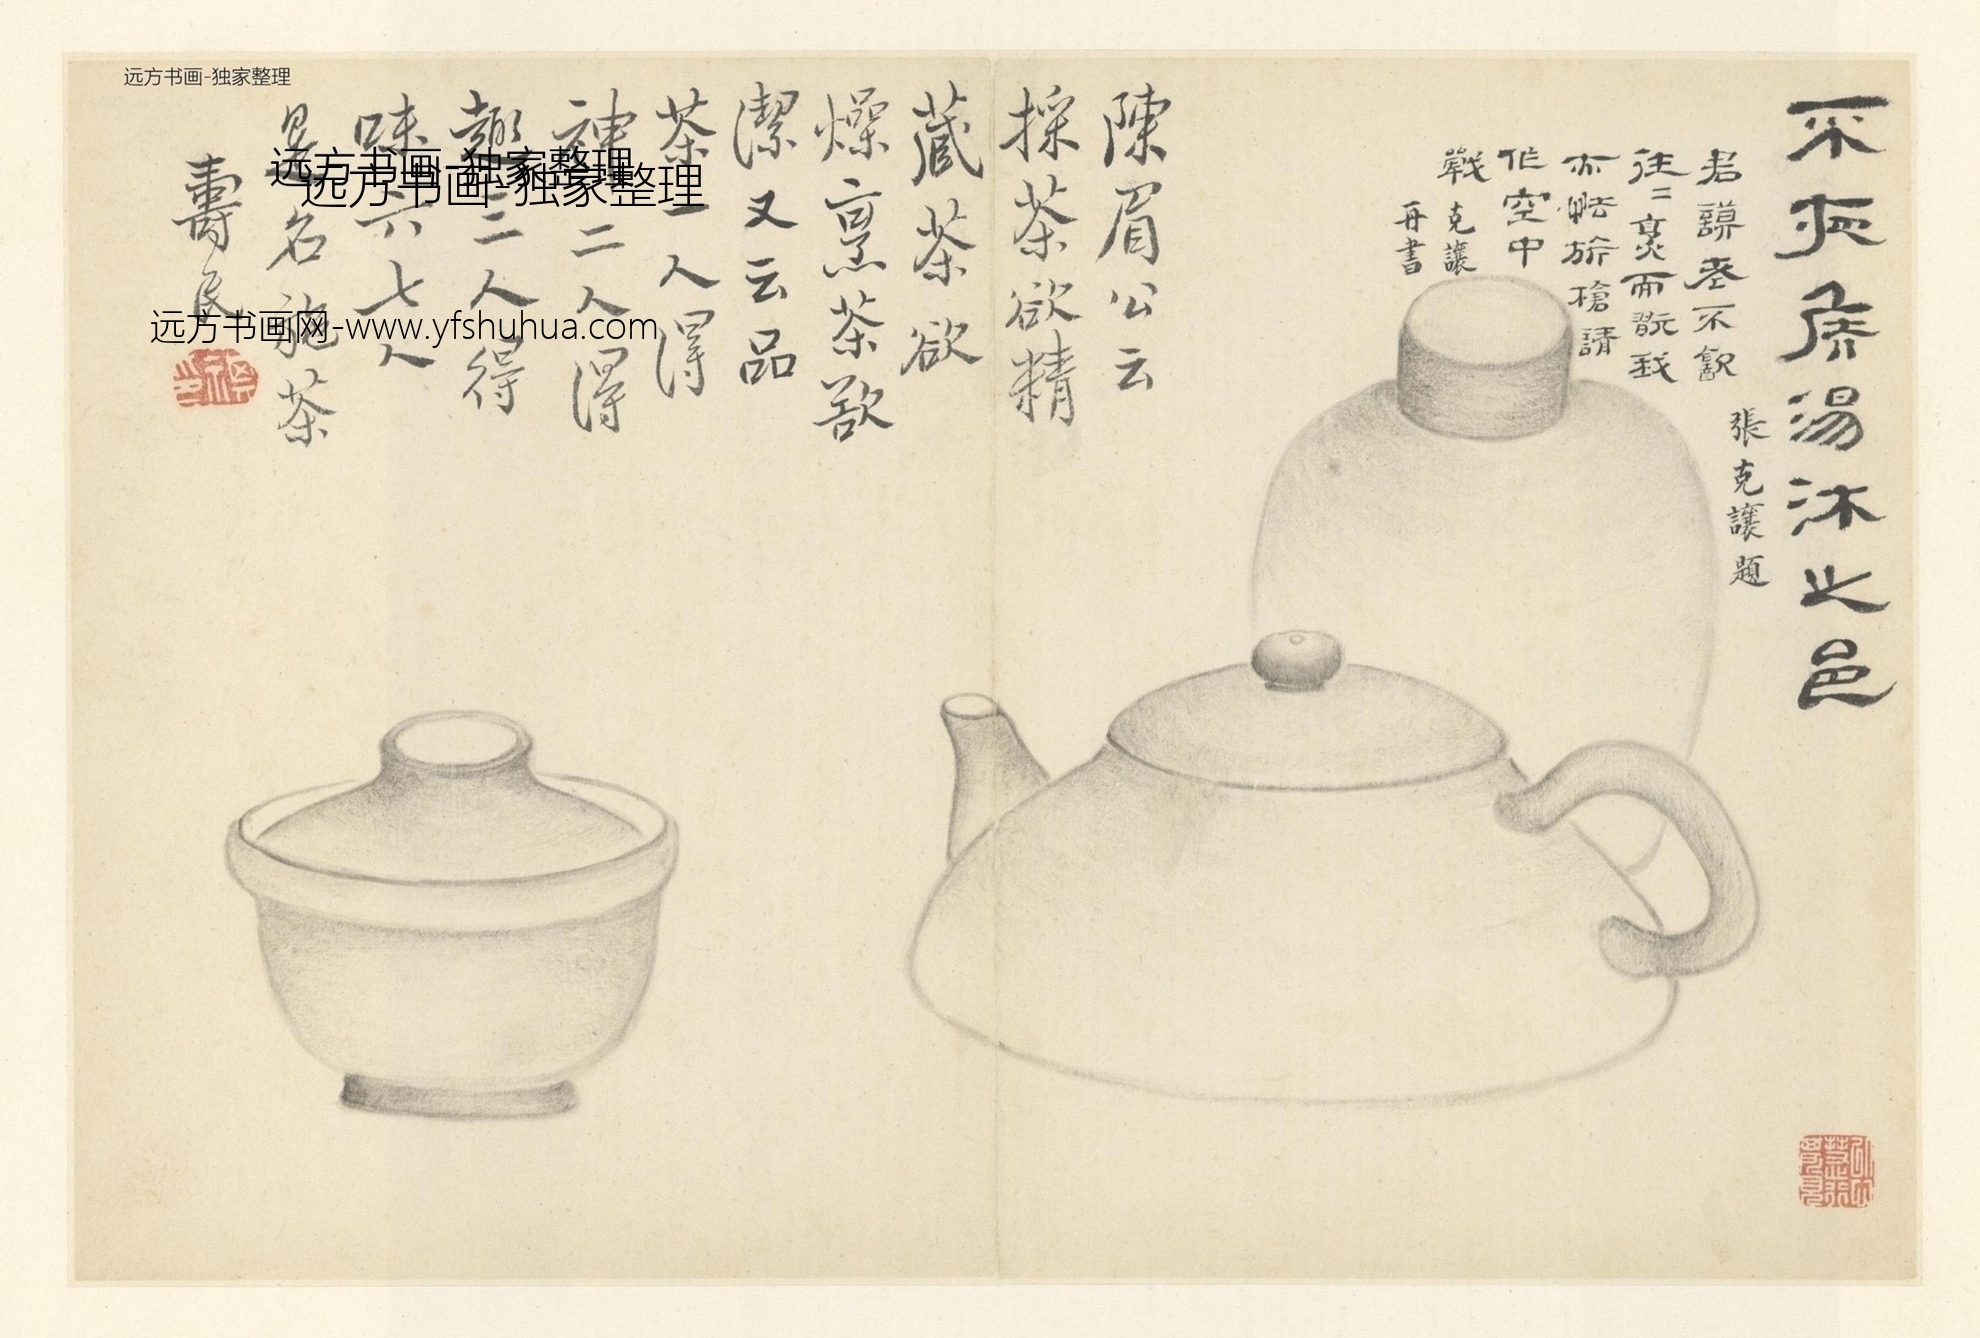 不夜侯湯沐之邑
張克讓題
君謨老不飲
往〻烹而翫我
亦怯於槍請
作空中
戰 克讓
再書
陳眉公云
採茶欲精
藏茶欲
燥烹茶欲
潔又云品
茶一人得
神二人得
趣三人得
味六七人
是名施茶
壽民
远方书画-独家整理
远方书画-独家整理
远方书画-独家整理
远方书画网-www.yfshuhua.com